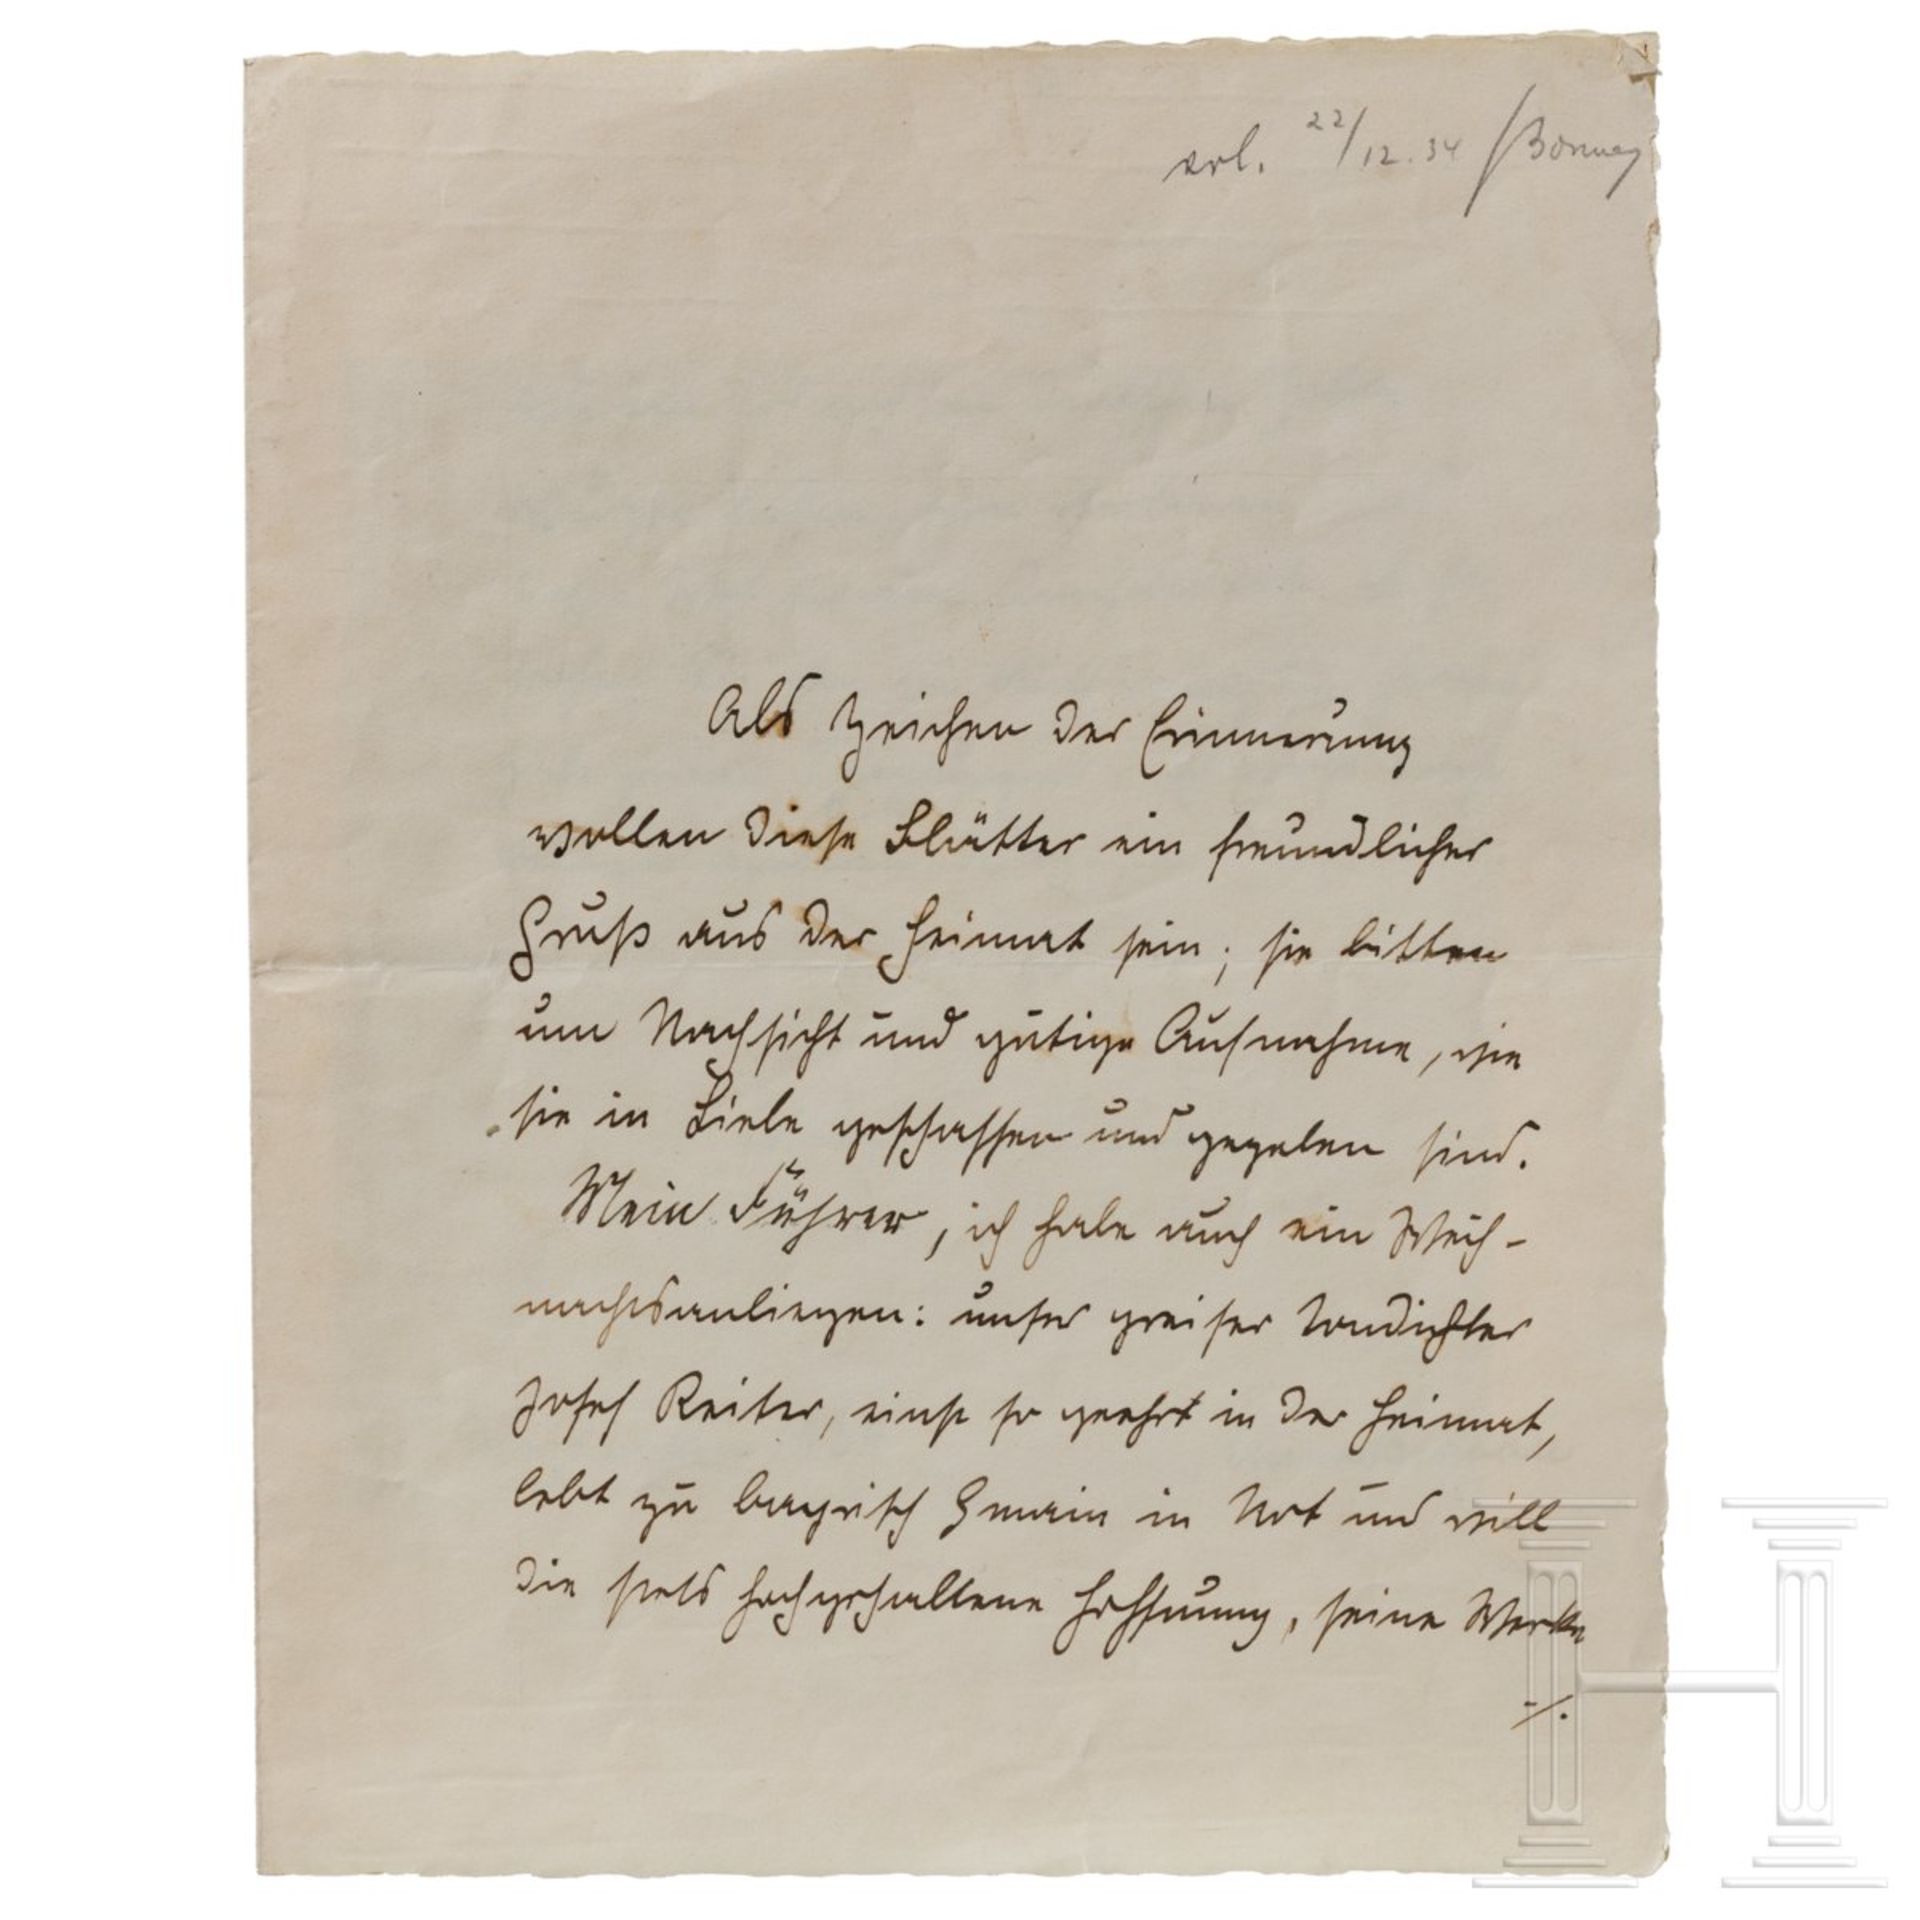 erl. 22/12.34
Als Zeichen der Erinnerung
wollen diese Blätter ein freundlicher
Gruß aus der Heimat sein; sie bitten
um Nachsicht und gütige Aufnahme, wie
sie in Liebe geschaffen und gegeben sind.
Mein Führer, ich habe auch ein Weih-
nachtsanliegen: unser greiser Tondichter
Josef Reiter, einst so geehrt in der Heimat,
lebt zu bayrisch Gmain in Not und will
die stets hochgehaltene Hoffnung, seine Werke
./.
H